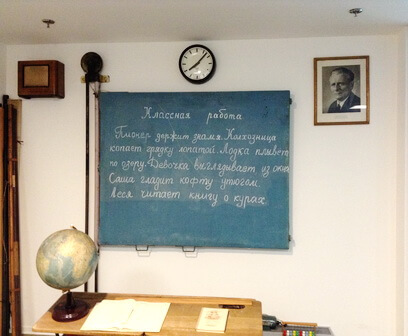 Классная работа
Пионер держит знамя. Колхозница
копает грядку лопатой. Лодка плывёт
по озеру. Девочка выглядывает из окна
Саша гладит кофту утюгом.
Леся читает книгу о курах.